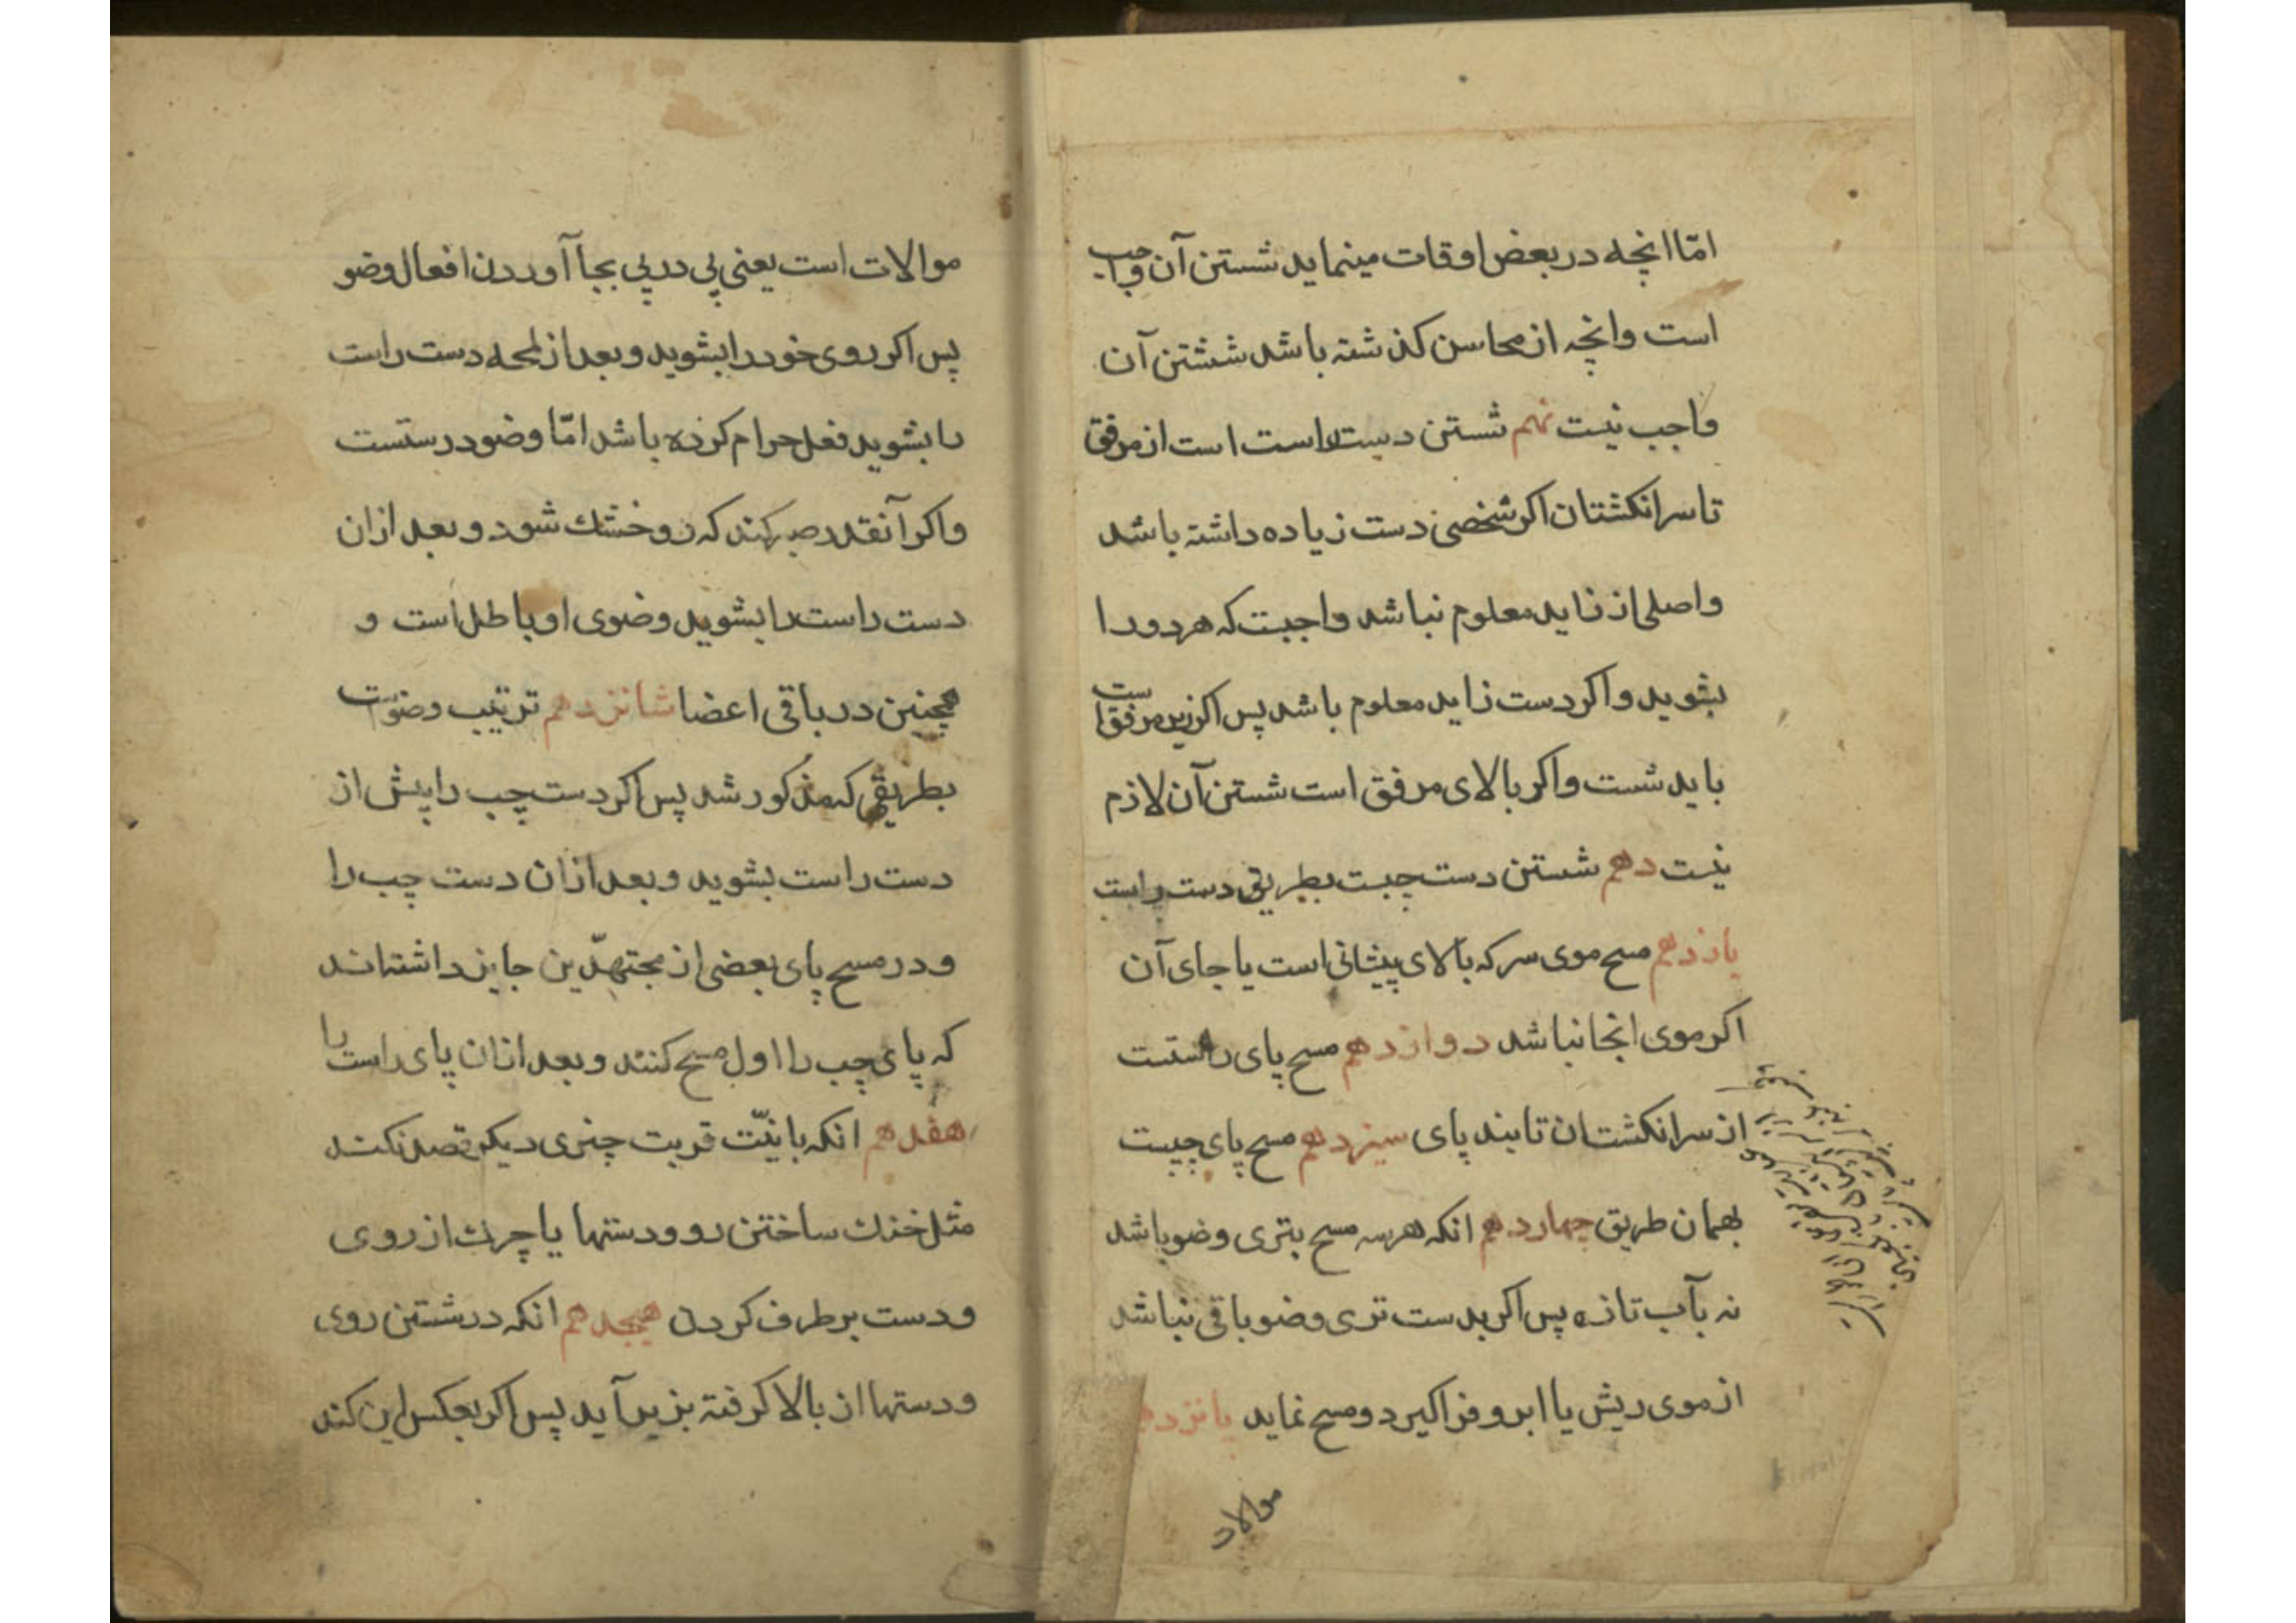 امّا انچه در بعض اوقات مینماید شستن آن واجب
است وانچه از محاسن کذشته باشد شستن آن
واجب نیست نهم شستن دست راست است از مرفق
تا سر انکشتان اکر شخصی دست زیاده داشته باشد
واصلی از زاید معلوم نباشد واجبست که هر دو را
بشوید واکر دست زاید معلوم باشد پس اکر زیر مرفق است
باید شست واکر بالای مرفق است شستن آن لازم
نیست دهم شستن دست چپست بطریق دست راست
یازدهم مسح موی سر که بالای پیشانی است یا جای آن
اکر موی انجا نباشد دوازدهم مسح پای راستست
از سر انکشتان تا بند پای سیزدهم مسح پای چپست
بهمان طریق چهاردهم انکه هر سه مسح بتری وضو باشد
نه بآب تازه پس اکر بدست تری وضو باقی نباشد
از موی ریش یا ابرو فرا کیرد ومسح نماید پانزدهم
موالات
موالات است یعنی پی در پی بجا آوردن افعال وضو
پس اکر روی خود را بشوید وبعد از لمحه دست راست
را بشوید فعل حرام کرده باشد امّا وضو درستست
واکر آنقدر صبر کند که رو خشك شود وبعد ازان
دست راست را بشوید وضوی او باطل است و
همچنین در باقی اعضا شانزدهم ترتیب وضوست
بطریقی که مذکور شد پس اکر دست چپ را پیش از
دست راست بشوید وبعد ازان دست چپ را
ودر مسح پای بعضی از مجتهدّین جایز داشته‌اند
که پای چپ را اول مسح کنند وبعد ازان پای راست را
هفدهم انکه با نیّت قربت چیزی دیکر قصد نکند
مثل خنك ساختن رو ودستها یا چرك از روی
ودست بر طرف کردن هیجدهم انکه در شستن روی
ودستها از بالا کرفته بزیر آید پس اکر بعکس این کند